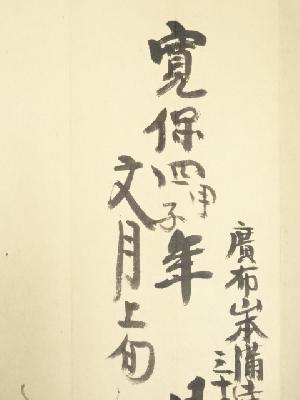 寛保四甲子年
文月上旬
廣布山本満寺
三十